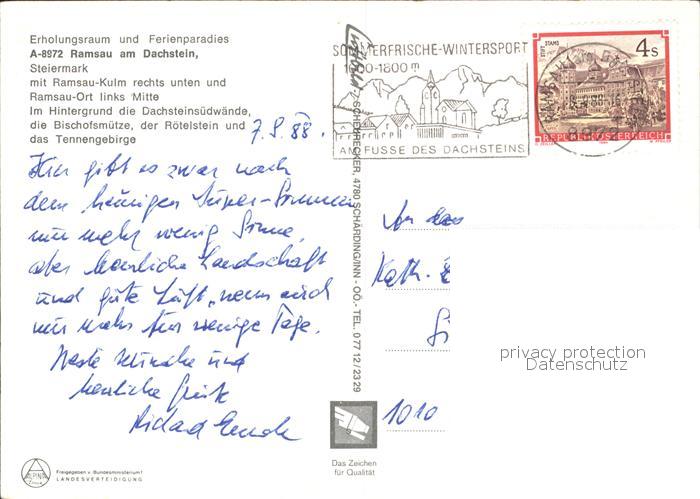 Erholungsraum und Ferienparadies
A-8972 Ramsau am Dachstein,
Steiermark
mit Ramsau-Kulm rechts unten und
Ramsau-Ort links Mitte
Im Hintergrund die Dachsteinsüdwände,
die Bischofsmütze, der Rötelstein und
das Tennengebirge
7.9.88.
Hier gibt es zwar nach
dem heurigen Super-Sommer
nur mehr wenig Sonne,
aber herrliche Landschaft
und gute Luft, wenn auch
nur mehr für wenige Tage.
Beste Wünsche und
herzliche Grüße
Richard
ALPINA
Freigegeben v. Bundesministerium f.
LANDESVERTEIDIGUNG
SCHEURECKER, 4780 SCHÄRDING/INN - OÖ. - TEL. 0 77 12 / 23 29
SOMMERFRISCHE-WINTERSPORT
1000-1800 m
AM FUSSE DES DACHSTEINS
STIFT STAMS
4 S
REPUBLIK ÖSTERREICH
An das
Kath.
1010
privacy protection
Datenschutz
Das Zeichen
für Qualität